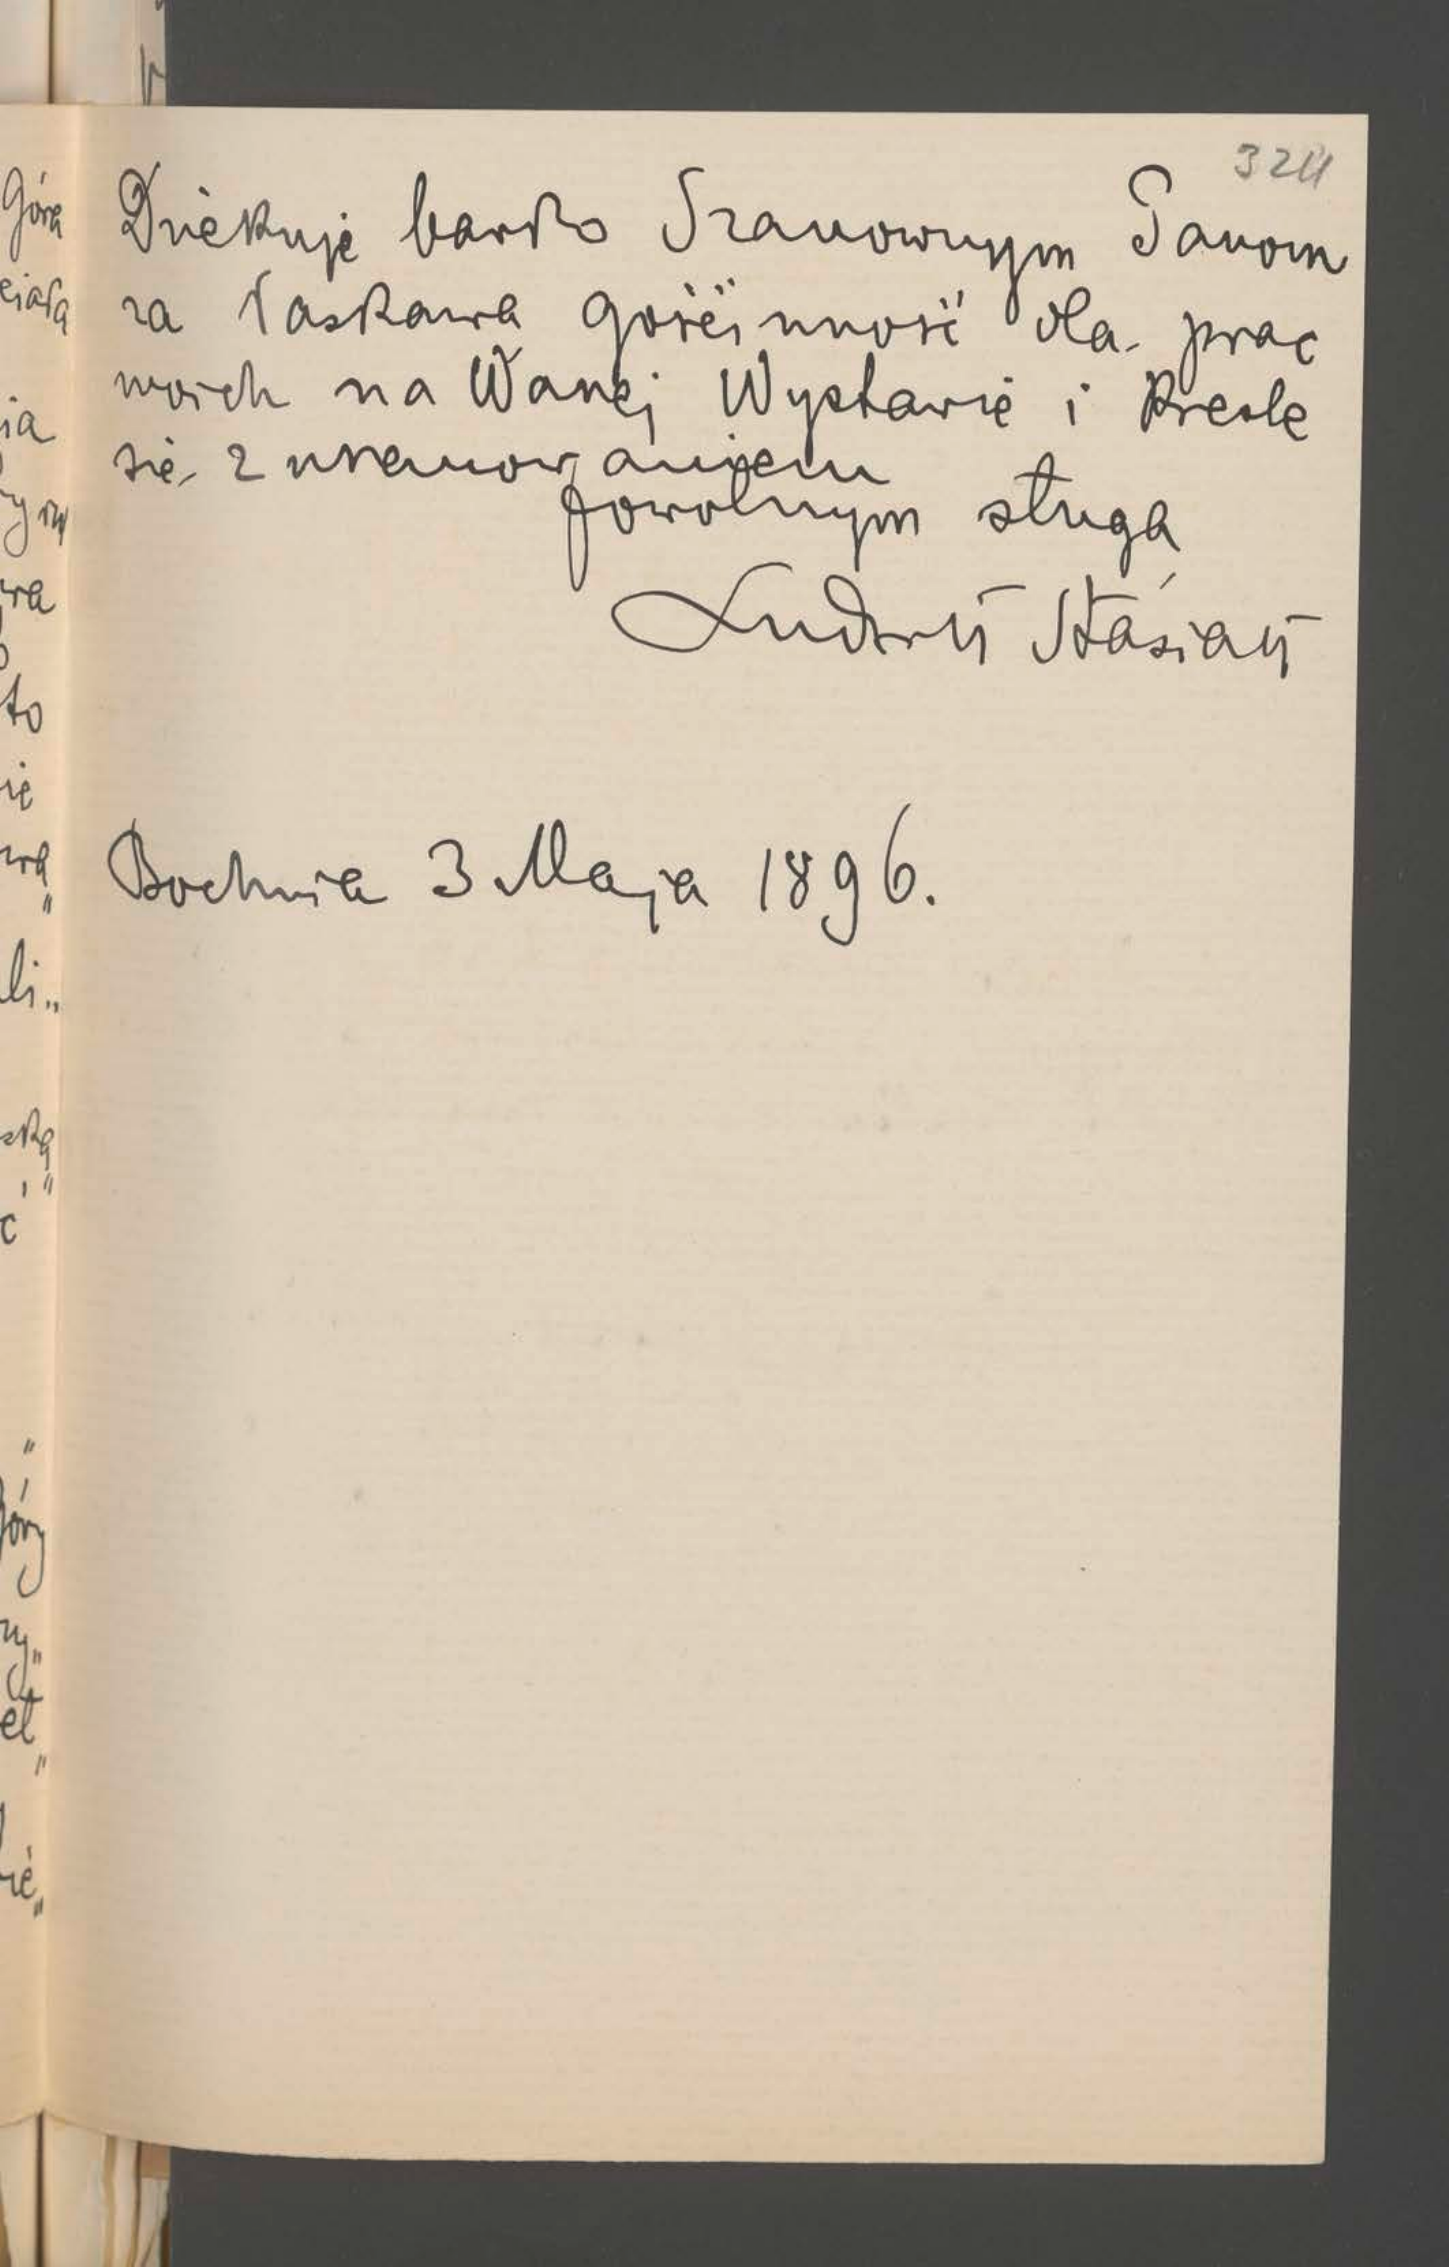 324
Dziękuję bardzo Szanownym Panom
za łaskawą gościnność dla prac
moich na Waszej Wystawie i kreślę
się z uszanowaniem
powolnym sługą
Ludwik Stasiak
Bochnia 3 Maja 1896.